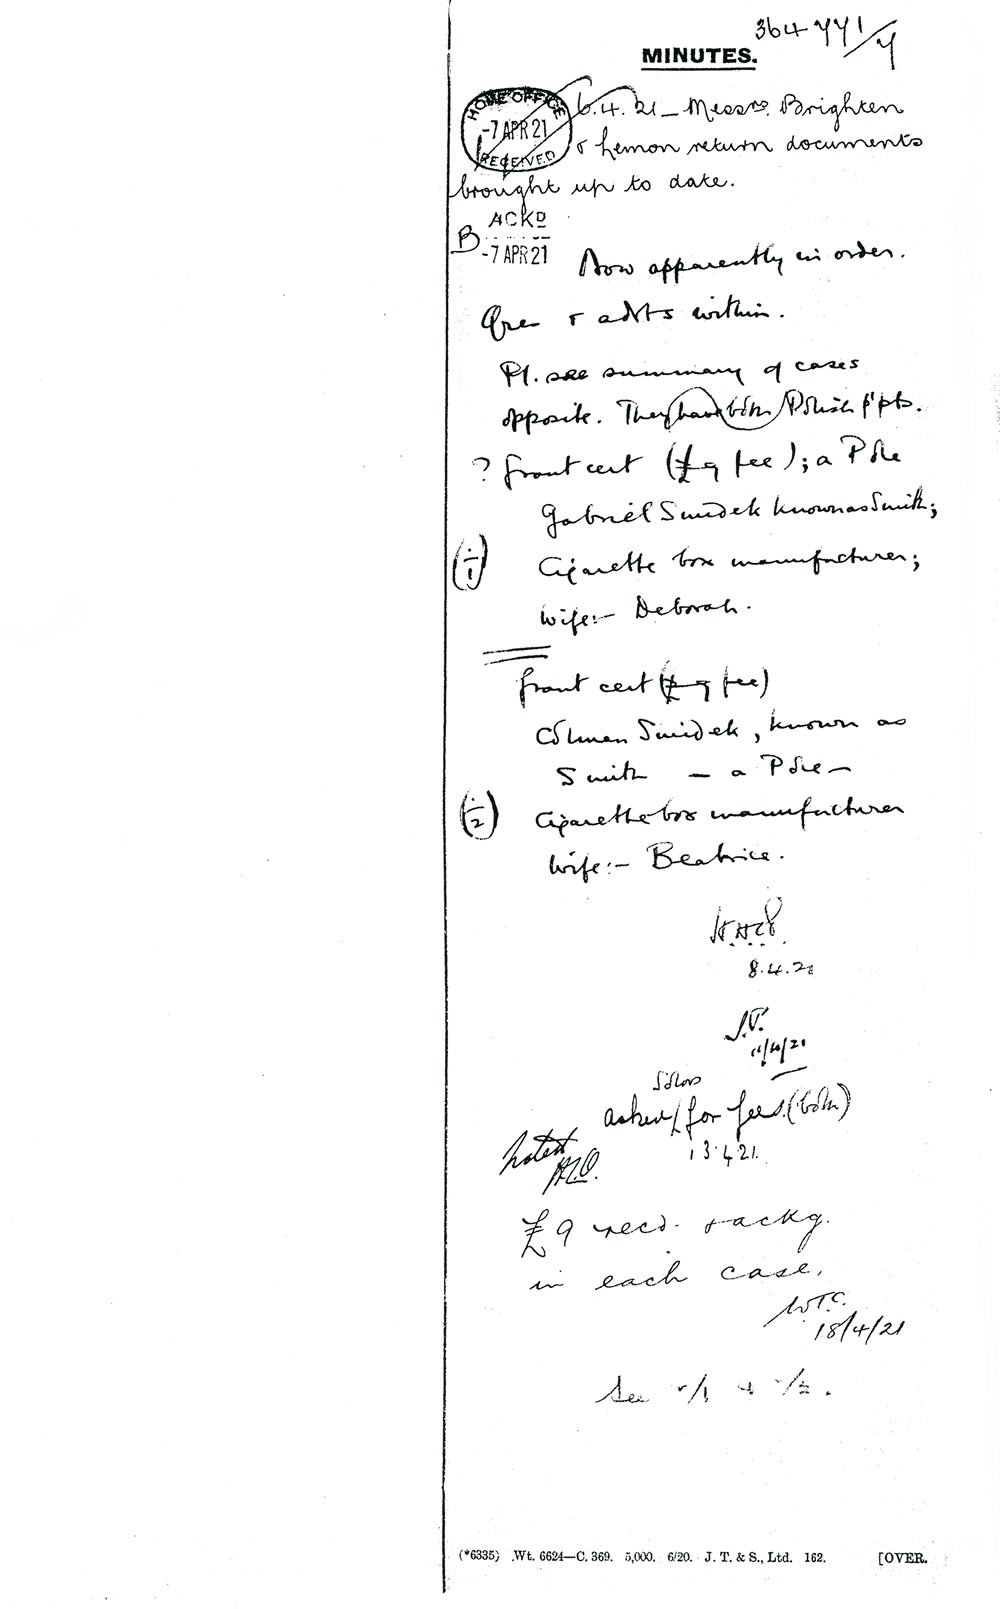 364771/7
MINUTES.
HOME OFFICE
-7 APR 21
RECEIVED
6.4.21 - Messrs. Brighten
& Lemon return documents
brought up to date.
ACKD
B
-7 APR 21
Now apparently in order.
& adts within.
Pl. see summary of cases
opposite. They have both Polish p'pts.
? Grant cert (£9 fee); a Pole
Gabriel Smidek known as Smith;
(÷1)
Cigarette box manufacturer;
wife:- Deborah.
Grant cert (£9 fee)
Colman Smidek, known as
Smith - a Pole -
(÷2)
Cigarette box manufacturer
Wife:- Beatrice.
8.4.21
J.P.
11/4/21
Solors
asked / for fees (both)
13.4.21.
Noted
£9 recd. & ackg.
in each case.
W.T.C.
18/4/21
See /1 & /2.
(*6335) Wt. 6624—C. 369. 5,000. 6/20. J. T. & S., Ltd. 162. [OVER.